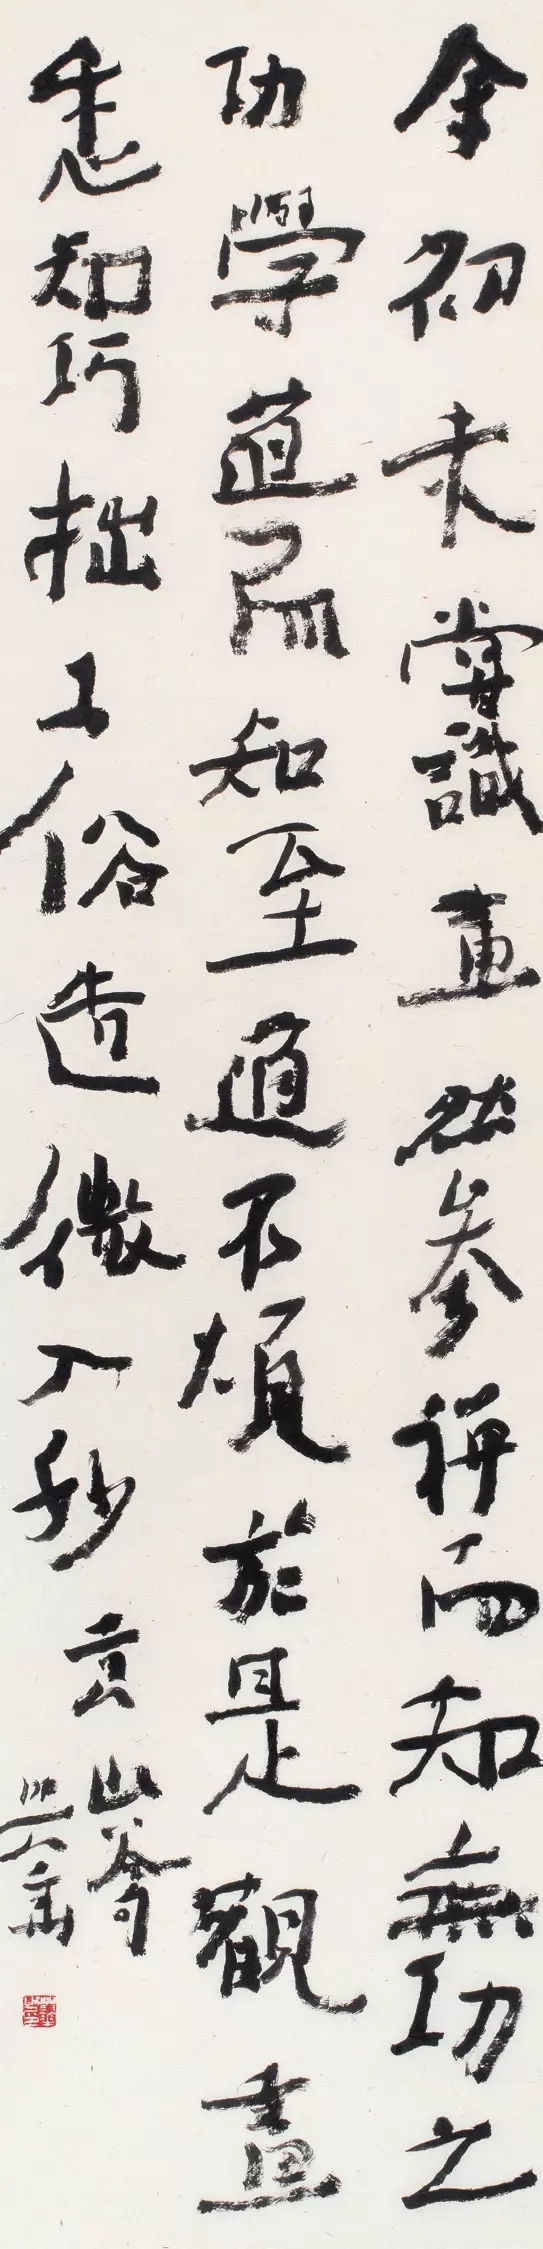 余初未嘗識畫然參禪而知無功之
功學道而知至道不煩於是觀畫
悉知巧拙工俗造微入妙